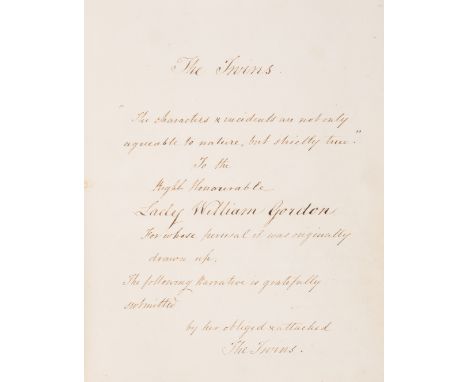 The Twins.
"The characters & incidents are not only
agreable to nature, but strictly true."
To the
Right Honourable
Lady William Gordon
For whose perusal it was originally
drawn up.
The following Narrative is gratefully
submitted
by her obliged & attached
The Twins.